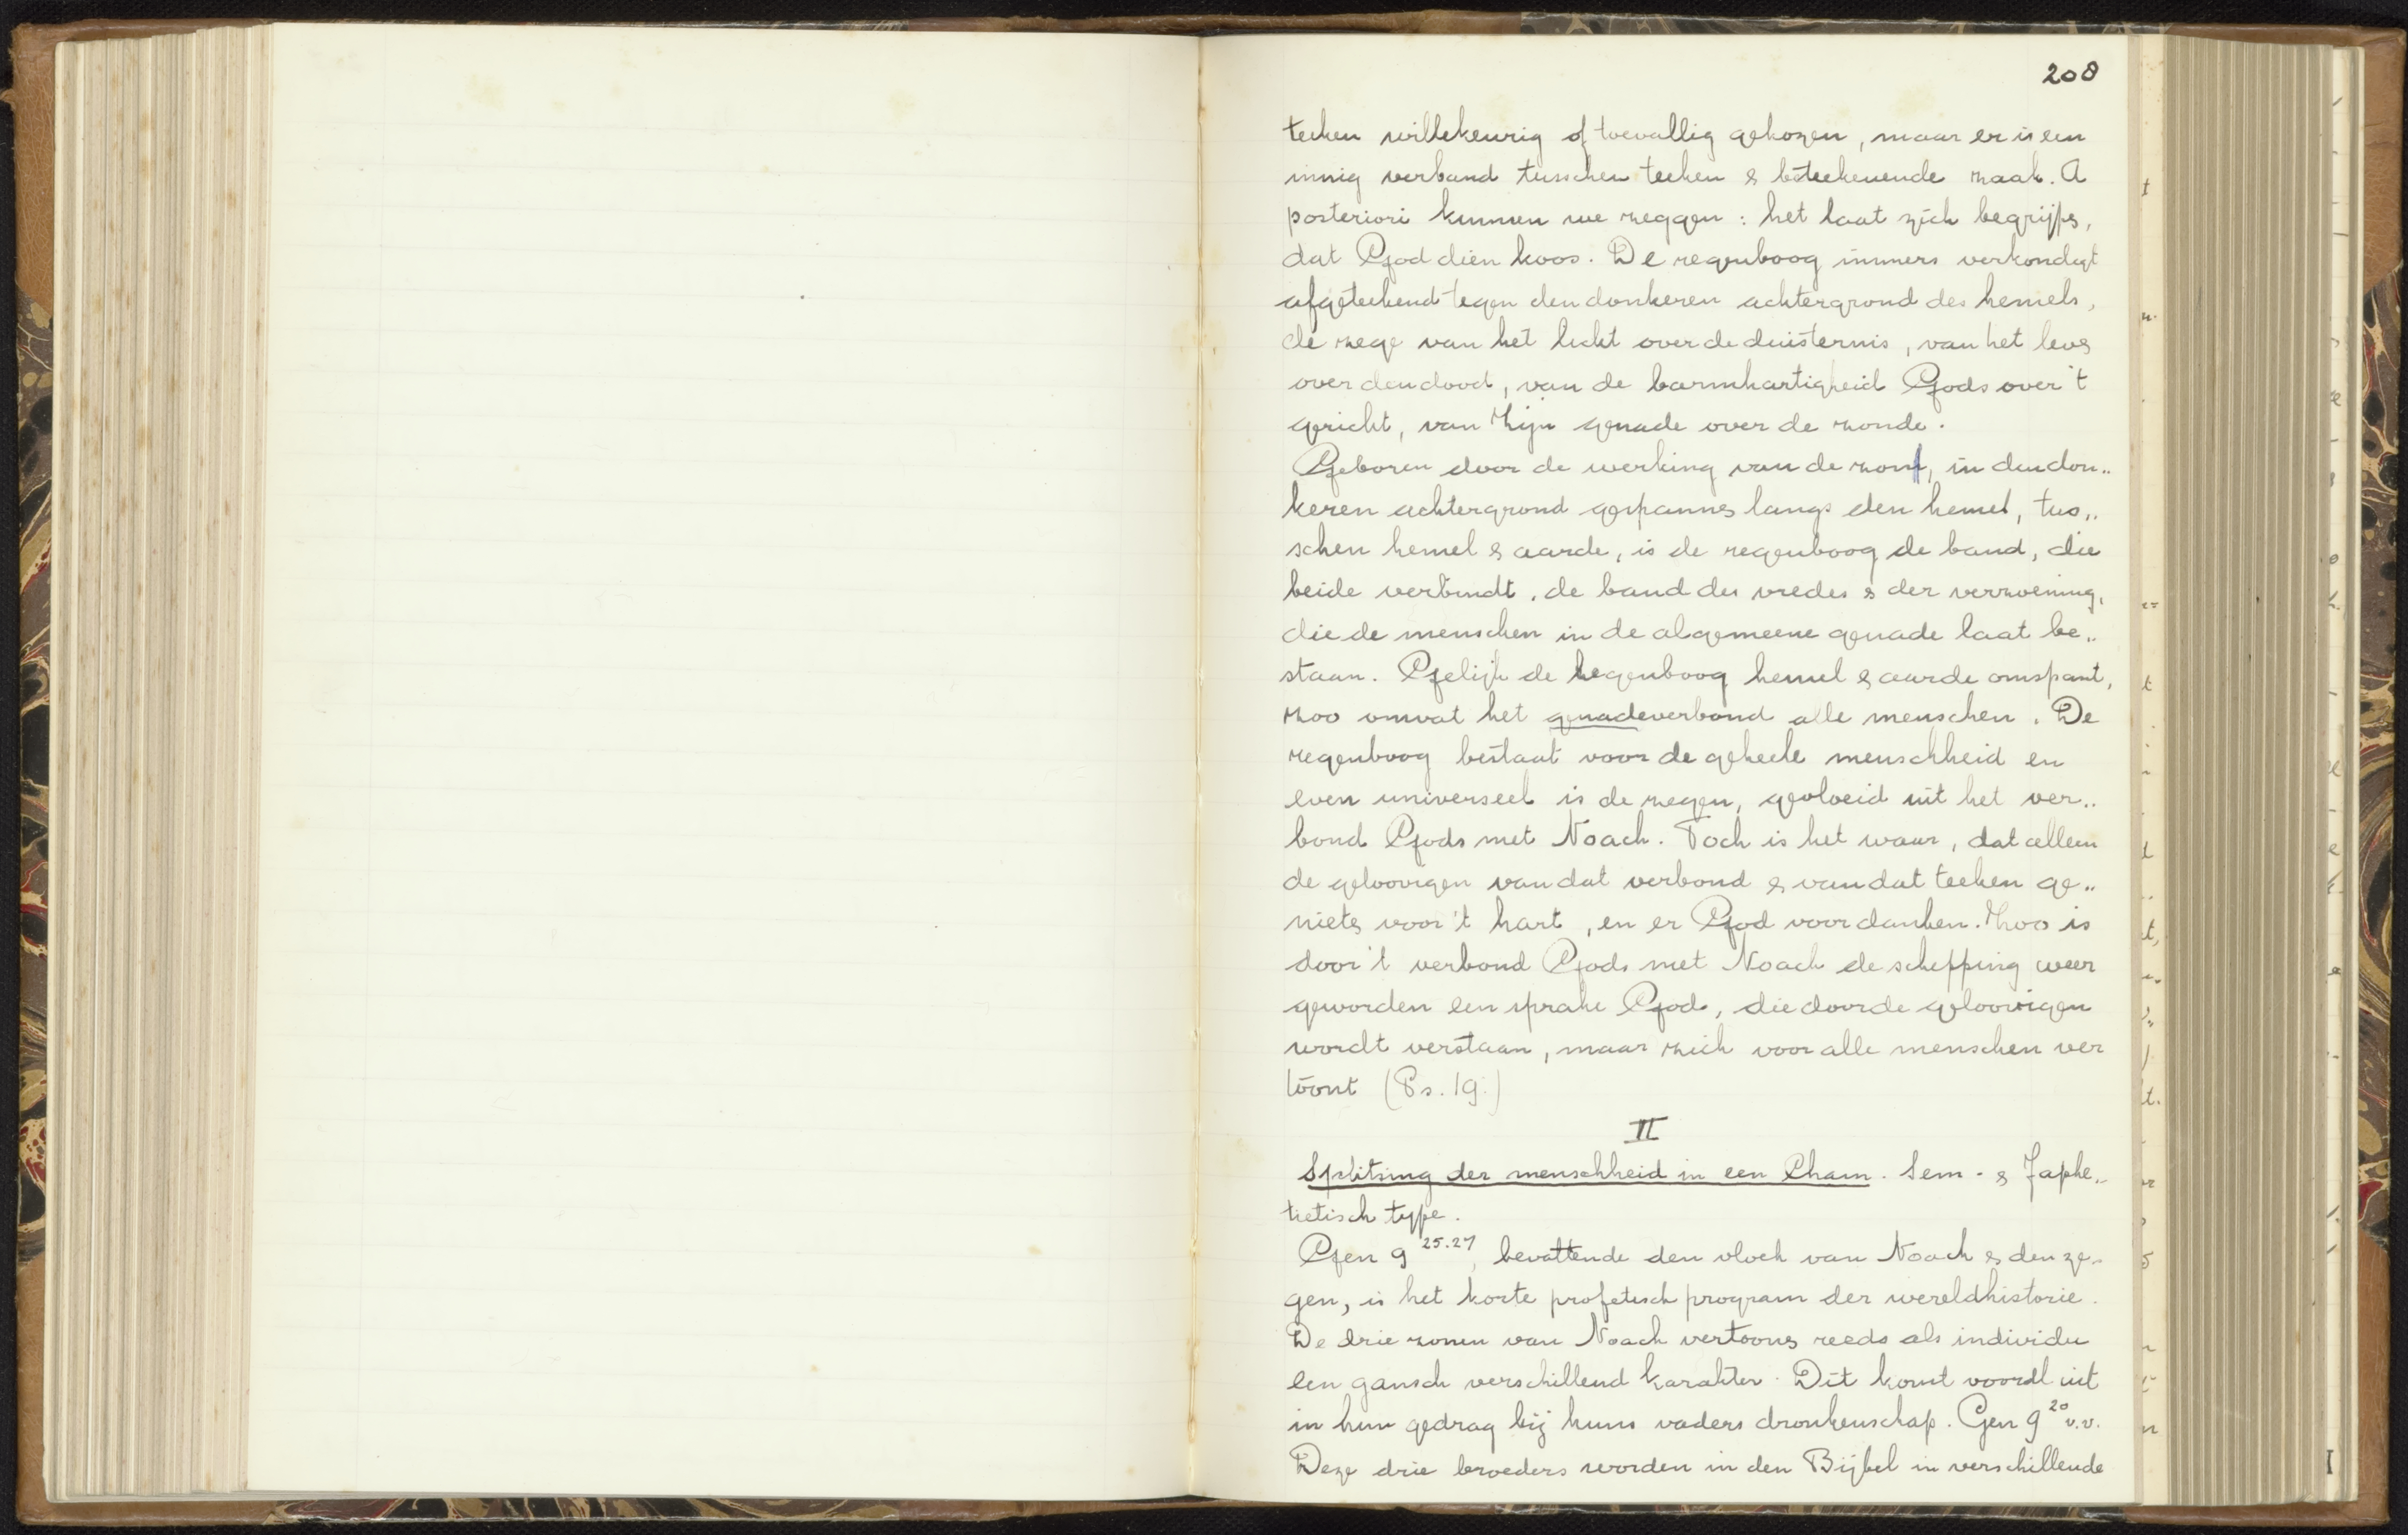 208
teeken willekeurig of toevallig gekozen, maar er is een
innig verband tusschen teeken & beteekenende zaak. A
posteriori kunnen we zeggen: het laat zich begrijpe,
dat God dien koos. De regenboog immers verkondigt
afgeteekend tegen den donkeren achtergrond des hemels,
de zege van het licht over de duisternis, van het leve
over den dood, van de barmhartigheid Gods over 't
gericht, van Zijn genade over de zonde.
Geboren door de werking van de zon, in den don„
keren achtergrond gespanne langs den hemel, tus„
schen hemel & aarde, is de regenboog de band, die
beide verbindt, de band des vredes & der verzoening,
die de menschen in de algemeene genade laat be„
staan. Gelijk de regenboog hemel & aarde omspant,
zoo omvat het genadeverbond alle menschen. De
regenboog bestaat voor de geheele menschheid en
even universeel is de zegen, gevloeid uit het ver„
bond Gods met Noach. Toch is het waar, dat alleen
de geloovigen van dat verbond & van dat teeken ge„
niete voor 't hart, en er God voor danken. Zoo is
door 't verbond Gods met Noach de schepping weer
geworden een sprake Gods, die door de geloovigen
wordt verstaan, maar zich voor alle menschen ver
toont (Ps. 19.)
II
Splitsing der menschheid in een Cham. Sem- & Japhe„
tietisch type.
Gen 9 25.27, bevattende den vloek van Noach & den ze-
gen, is het korte profetisch program der wereldhistorie.
De drie zonen van Noach vertoone reeds als individu
een gansch verschillend karakter. Dit komt voordl uit
in hun gedrag bij huns vaders dronkenschap. Gen 9 20 v.v.
Deze drie broeders worden in den Bijbel in verschillende